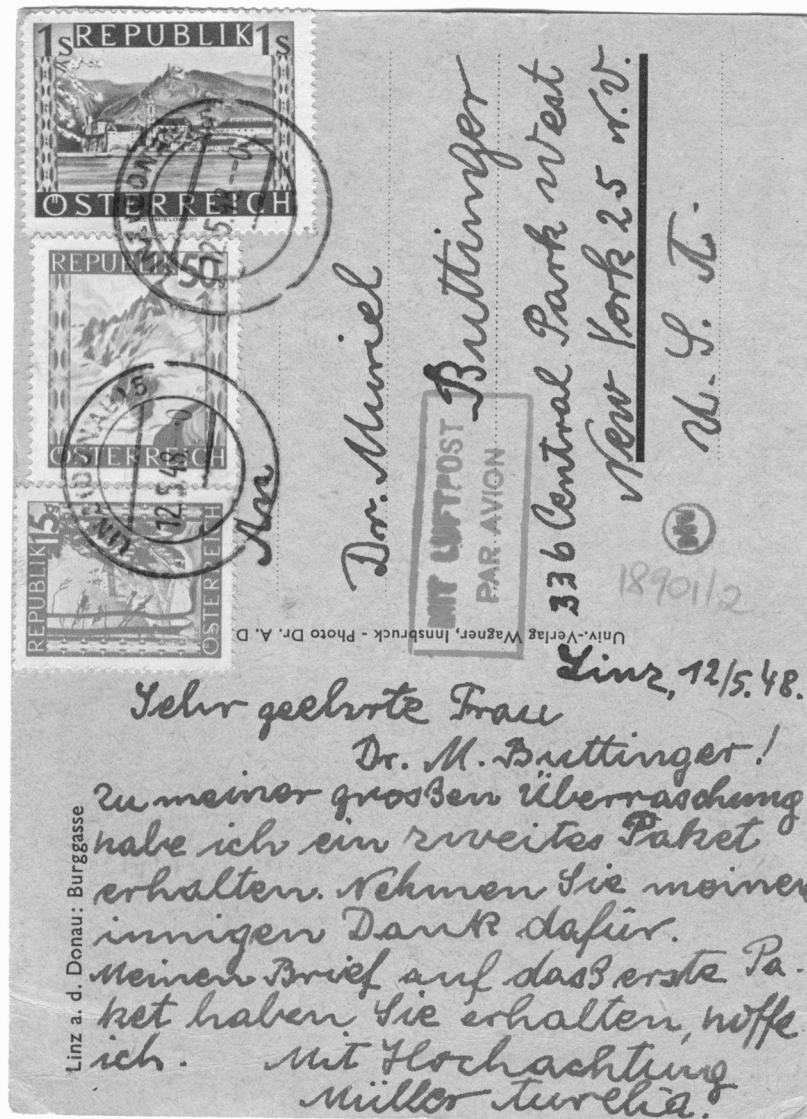 1S REPUBLIK 1S
ÖSTERREICH
REPUBLIK 50g
ÖSTERREICH
REPUBLIK 15g
ÖSTERREICH
LINZ (DONAU) 5
12.5.48
LINZ (DONAU) 5
12.5.48
MIT LUFTPOST
PAR AVION
An
Dr. Muriel
Buttinger
336 Central Park West
New York 25 N.Y.
U. S. A.
18901/2
Univ.-Verlag Wagner, Innsbruck - Photo Dr. A. D
Linz a. d. Donau: Burggasse
Linz, 12/5.48.
Sehr geehrte Frau
Dr. M. Buttinger!
Zu meiner großen Überraschung
habe ich ein zweites Paket
erhalten. Nehmen Sie meinen
innigen Dank dafür.
Meinen Brief auf daß erste Pa-
ket haben Sie erhalten, hoffe
ich. Mit Hochachtung
Müller Aurelia